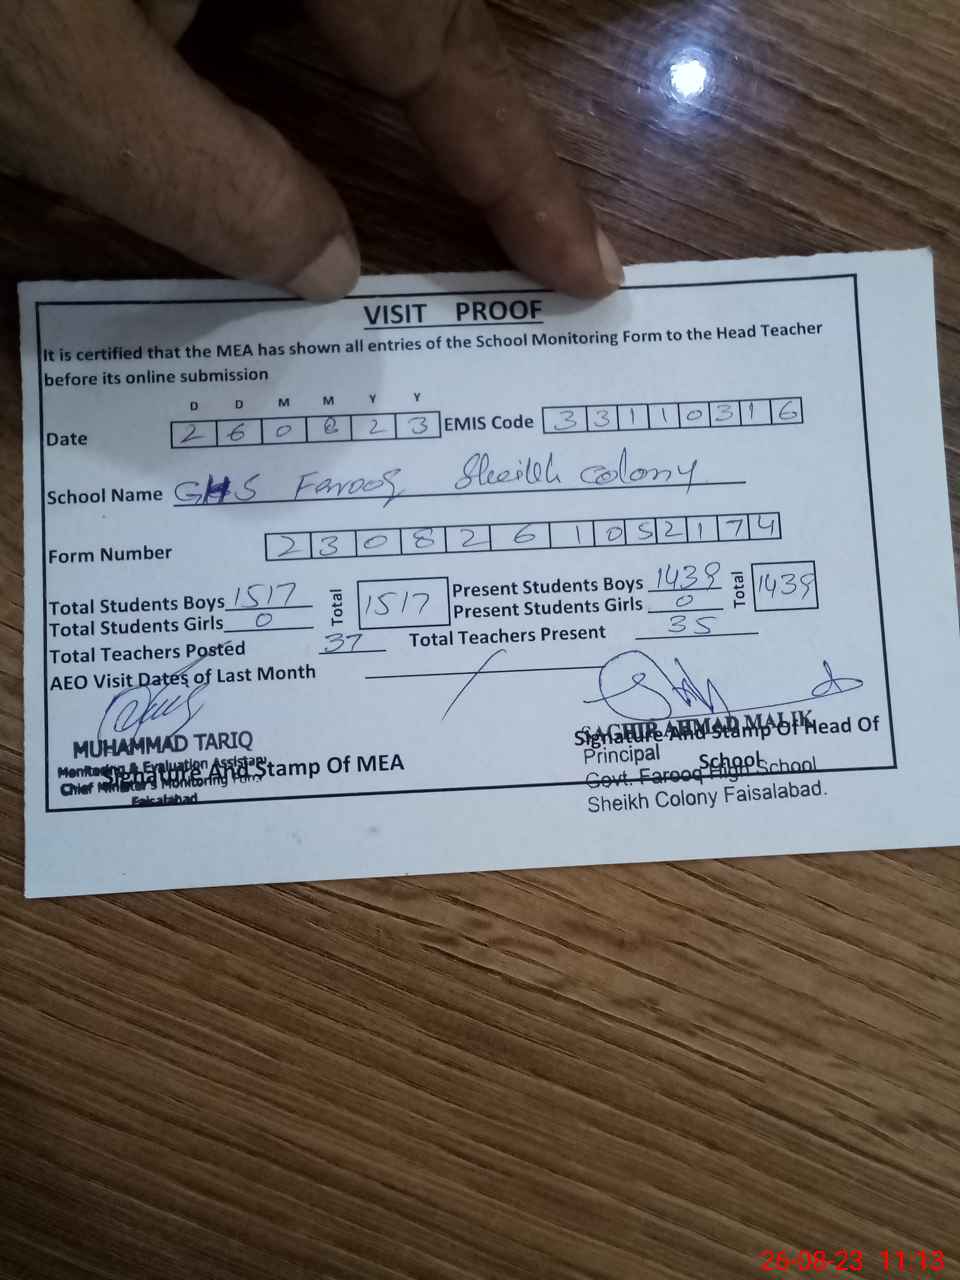 VISIT PROOF
It is certified that the MEA has shown all entries of the School Monitoring Form to the Head Teacher
before its online submission
D D M M Y Y
Date 2 6 0 8 2 3 EMIS Code 3 3 1 1 0 3 1 6
School Name GHS Farooq Sheikh Colony
Form Number 2 3 0 8 2 6 1 0 5 2 1 7 4
Total Students Boys 1517 Total 1517 Present Students Boys 1439 Total 1439
Total Students Girls 0 Present Students Girls 0
Total Teachers Posted 37 Total Teachers Present 35
AEO Visit Dates of Last Month
MUHAMMAD TARIQ
Monitoring & Evaluation Assistant
Chief Minister's Monitoring Force
Faisalabad
Signature And Stamp Of MEA
SAGHIR AHMAD MALIK
Signature And Stamp Of Head Of
School
Principal
Govt. Farooq High School
Sheikh Colony Faisalabad.
26-08-23 11:13